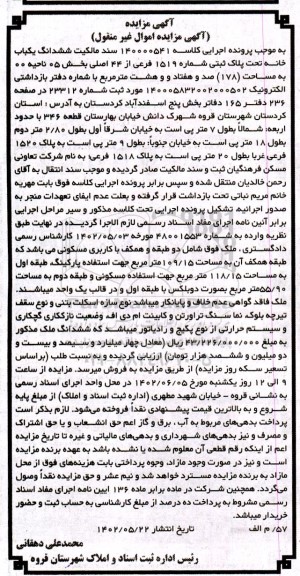 آگهی مزایده
(آگهی مزایده اموال غیر منقول)
به موجب پرونده اجرایی کلاسه ۱۴۰۰۰۰۵۴۱ سند مالکیت ششدانگ یکباب
خانه تحت پلاک ثبتی شماره ۱۵۱۹ فرعی از ۴۴ اصلی بخش ۰۵ ناحیه ۰۰
به مساحت (۱۷۸) صد و هفتاد و و هشت مترمربع با شماره دفتر بازداشتی
الکترونیک ۱۴۰۰۰۵۸۳۲۰۰۲۰۰۰۵۰۲ مورد ثبت شماره ۲۳۳۱۲ در صفحه
۲۳۶ دفتر ۱۶۵ دفاتر بخش پنج اسفندآباد کردستان به آدرس : استان
کردستان شهرستان قروه شهرک دانش خیابان بهارستان قطعه ۳۴۶ با حدود
اربعه: شمالاً بطول ۷ متر پی است به خیابان شرقاً اول بطول ۲/۸۰ متر دوم
بطول ۱۸ متر پی است به خیابان جنوباً: بطول ۹ متر پی است به پلاک ۱۵۲۰
فرعی غربا بطول ۲۰ متر پی است به پلاک ۱۵۱۸ فرعی؛ به نام شرکت تعاونی
مسکن فرهنگیان ثبت و سند مالکیت صادر گردیده و موجب سند انتقال به آقای
رحمن خالدیان منتقل شده و سپس برابر پرونده اجرایی کلاسه فوق بابت مهریه
خانم مریم نباتی تحت بازداشت قرار گرفته و بعلت عدم ایفای تعهدات منجر به
صدور اجرائیه تشکیل پرونده اجرایی تحت کلاسه مذکور و سیر مراحل اجرایی
برابر آئین نامه اجرای مفاد اسناد رسمی لازم الاجرا گردیده در نهایت طبق
نظریه وارده به شماره ۴۸۰۰۱۵۵۳ مورخه ۱۴۰۲/۰۵/۰۳ کارشناس رسمی
دادگستری ، ملک فوق شامل دو طبقه و همکف با کاربری مسکونی می باشد که
طبقه همکف آن به مساحت ۱۰۹/۱۵ متر مربع جهت استفاده پارکینگ، طبقه اول
به مساحت ۱۱۸/۱۵ متر مربع جهت استفاده مسکونی و طبقه دوم به مساحت
۵۵/۹۰متر مربع بصورت دوبلکس با طبقه اول و در قالب یک واحد میباشند.
ملک فاقد گواهی عدم خلاف و پایانکار میباشد نوع سازه اسکلت بتنی و نوع سقف
تیرچه بلوک، نما سنگ تراورتن و کابینت ام دی اف، وضعیت نازک‌کاری گچکاری
و سیستم حرارتی از نوع پکیج و رادیاتور میباشد که ششدانگ ملک مذکور
به مبلغ ۴۳/۲۲۶/۰۰۰/۰۰۰ ریال (معادل چهار میلیارد و سیصد و بیست و
دو میلیون و ششصد هزار تومان) ارزیابی گردیده و به نسبت طلب (براساس
تسعیر سکه روز مزایده) از طریق مزایده به فروش میرسد. مزایده از ساعت
۹ الی ۱۲ روز یکشنبه مورخ ۱۴۰۲/۰۶/۰۵ در محل واحد اجرای اسناد رسمی
به نشانی قروه - خیابان شهید مطهری (اداره ثبت اسناد و املاک) از مبلغ پایه
شروع و به بالاترین قیمت پیشنهادی نقداً فروخته می‌شود. لازم بذکر است
پرداخت بدهی‌های مربوط به آب ، برق و گاز اعم حق انشعاب و یا حق اشتراک
و مصرف و نیز بدهی‌های شهرداری و بدهی‌های مالیاتی و غیره تا تاریخ مزایده
اعم از اینکه رقم قطعی آن معلوم شده یا نشده باشد به عهده برنده مزایده
است و نیز در صورت وجود مازاد، وجوه پرداختی بابت هزینه‌های فوق از محل
مازاد به برنده مزایده مسترد خواهد شد و نیم عشر و حق مزایده نقداً وصول
می‌گردد. همچنین شرکت در ماده برابر ماده ۱۳۶ ایین نامه اجرای مفاد اسناد
رسمی مشروط به پرداخت ده درصد از مبلغ کارشناسی به حساب ثبت و حضور
خریدار میباشد.
۵۷/ م الف تاریخ انتشار ۱۴۰۲/۰۵/۲۲
محمدعلی دهقانی
رئیس اداره ثبت اسناد و املاک شهرستان قروه